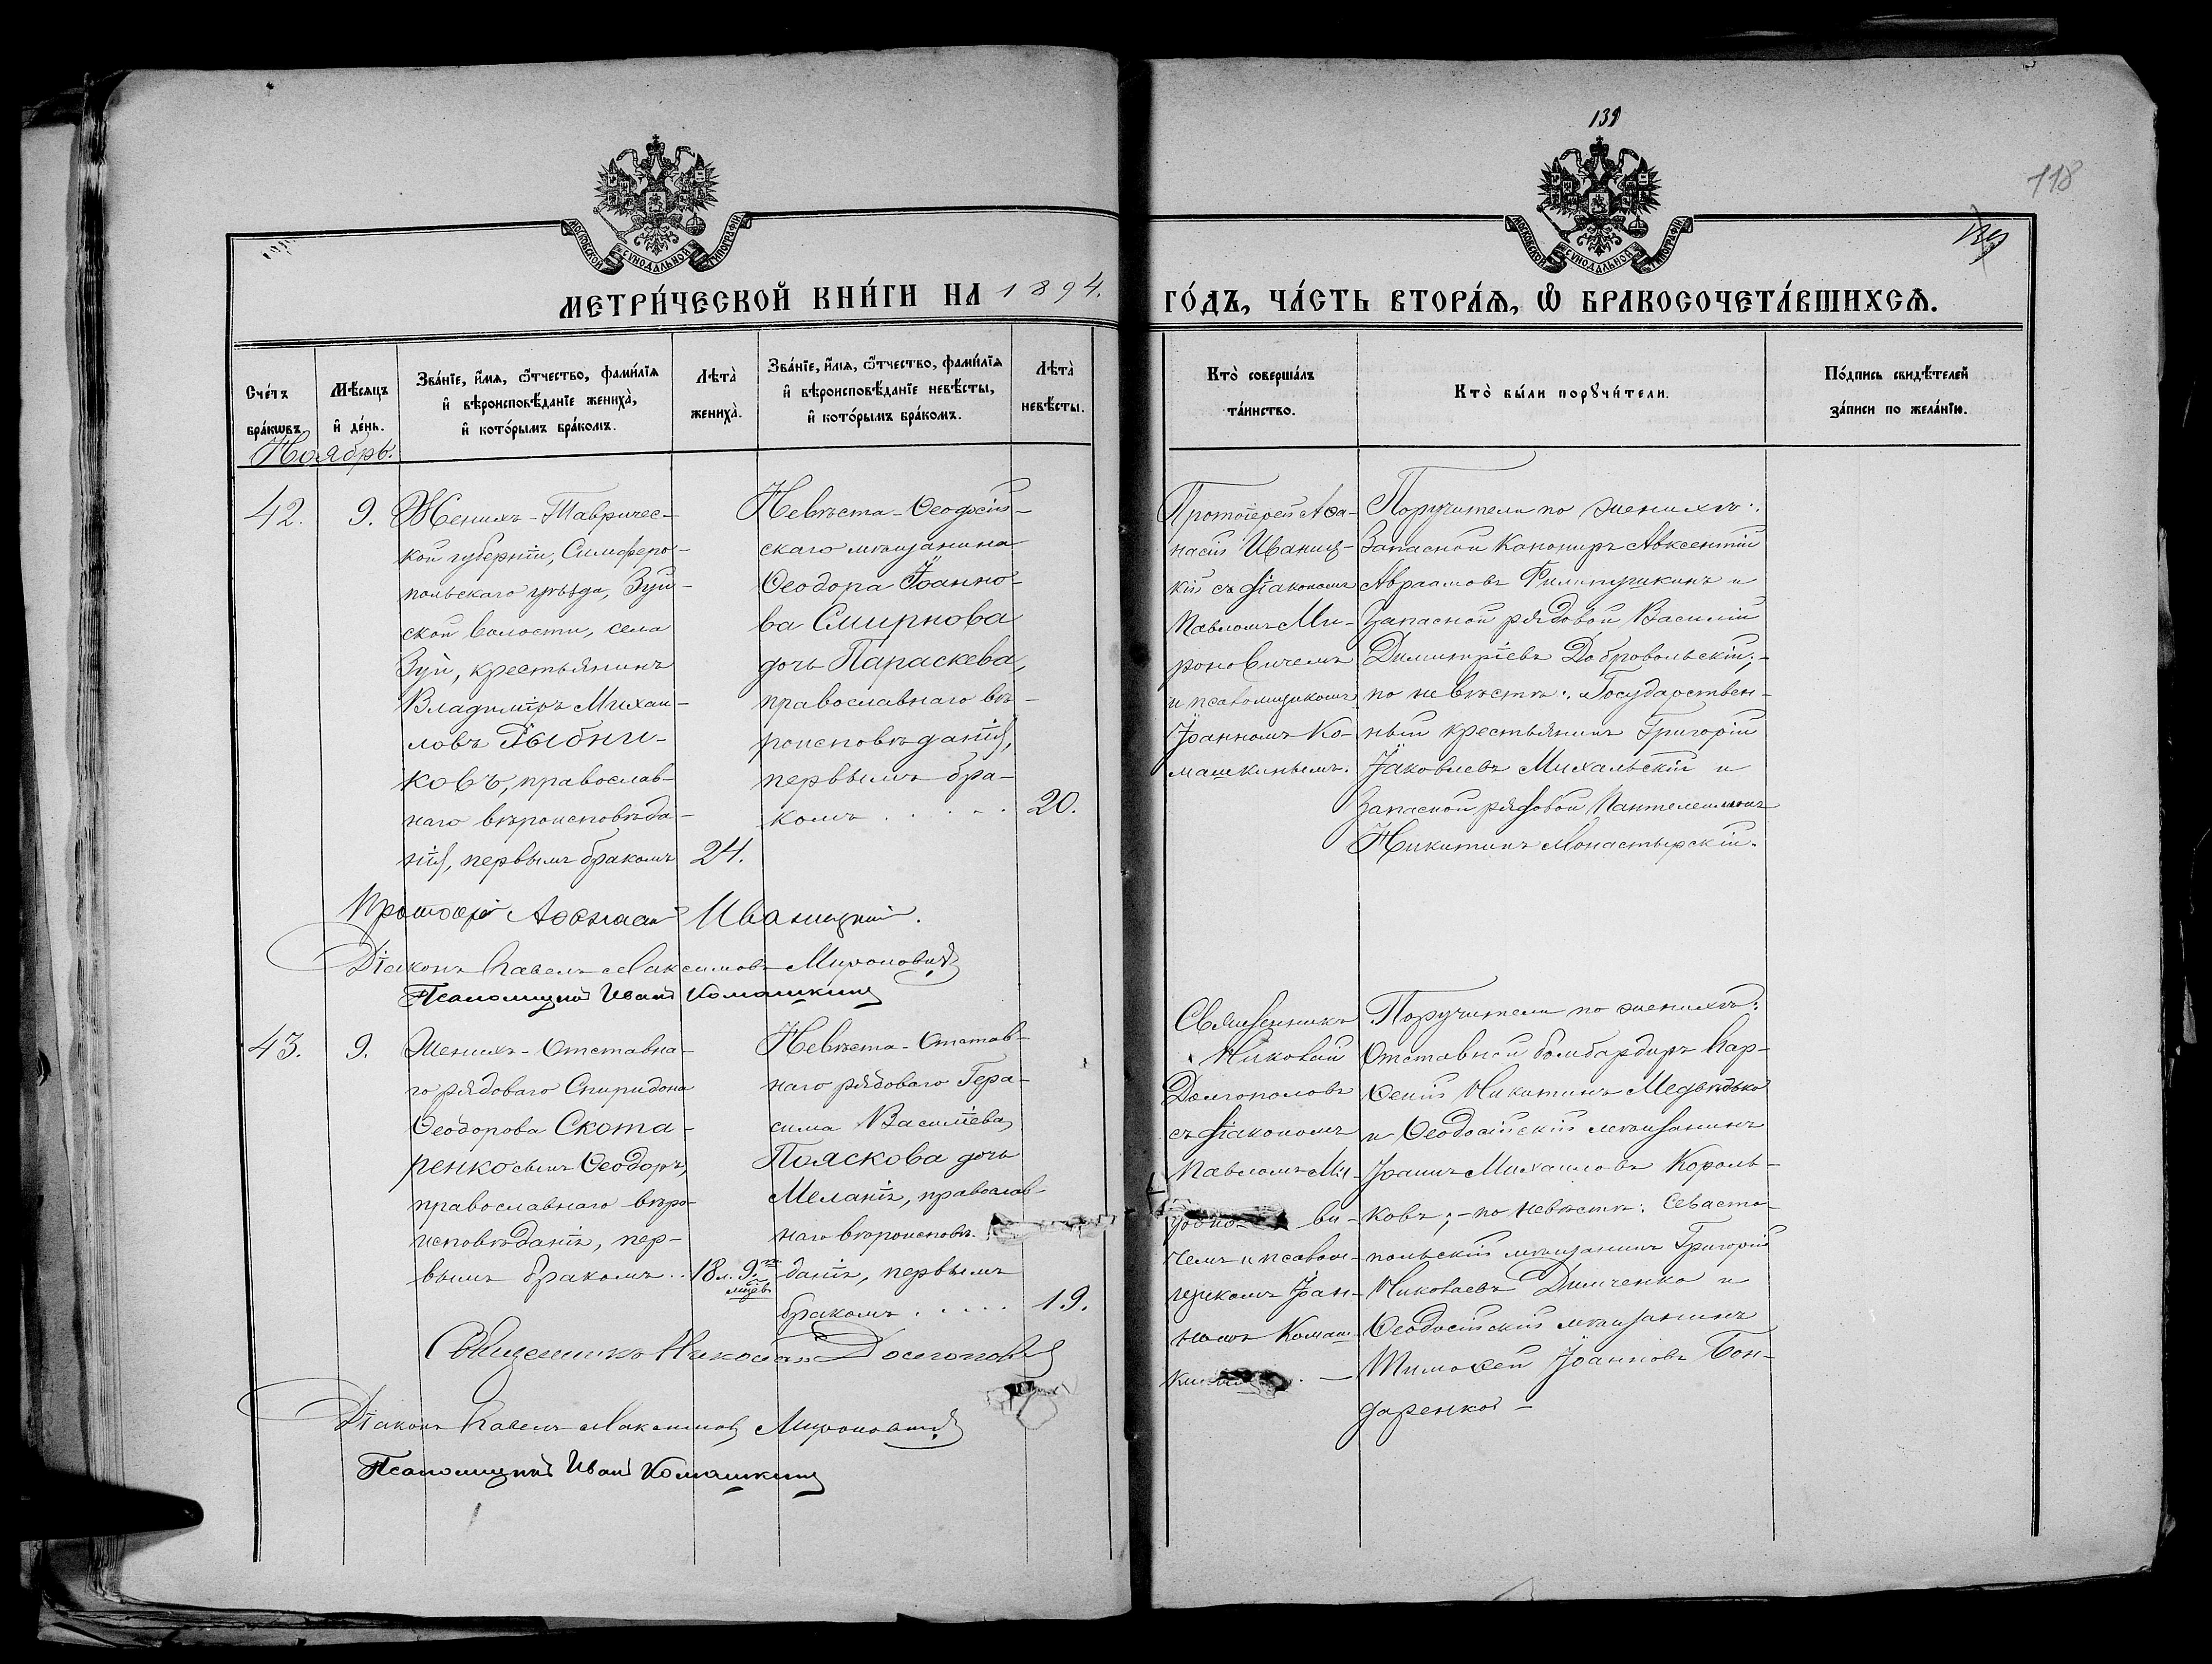 139
118
МОСКОВСКОЙ СѴНОДАЛЬНОЙ ТИПОГРАФІИ
МОСКОВСКОЙ СѴНОДАЛЬНОЙ ТИПОГРАФІИ
МЕТРИ́ЧЕСКОЙ КНИ́ГИ НА 1894.
ГО́ДЪ, ЧА́СТЬ ВТОРА́Ѧ, Ѽ БРАКОСОЧЕТА́ВШИХСѦ.
Сче́тъ
бра́кѡвъ.
Мѣ́сяцъ
и҆ де́нь.
Зва́нїе, и҆́мѧ, ѻ҆́тчество, фами́лїѧ
и҆ вѣроисповѣ́данїе жениха̀,
и҆ кото́рымъ бра́комъ.
Лѣта̀
жениха̀.
Зва́нїе, и҆́мѧ, ѻ҆́тчество, фами́лїѧ
и҆ вѣроисповѣ́данїе невѣ́сты,
и҆ кото́рымъ бра́комъ.
Лѣта̀
невѣ́сты.
Кто̀ соверша́лъ
та́инство.
Кто̀ бы́ли порꙋчи́тели.
По́дпись свидѣ́телей
за́писи по жела́нїю.
Ноябрь.
42.
9.
Женихъ - Тавричес-
кой губерніи, Симферо-
польскаго уѣзда, Зуй-
ской волости, села
Зуй, крестьянинъ
Владиміръ Михаи-
ловъ Рыбни-
ковъ, православ-
наго вѣроисповѣда-
нія, первымъ бракомъ
24.
Невѣста - Ѳеодосій-
скаго мѣщанина
Ѳеодора Іоанно-
ва Смирнова
дочь Параскева,
православнаго вѣ-
роисповѣданія,
первымъ бра-
комъ . . . . .
20.
Протоіерей Аѳа-
насій Иваниц-
кій съ діакономъ
Павломъ Ми-
роновичемъ
и псаломщикомъ
Іоанномъ Ко-
машкинымъ.
Поручители по женихѣ:
Запасной Канониръ Авксентій
Авраамовъ Филипушкинъ и
Запасной рядовой Василій
Димитріевъ Добровольскій; -
по невѣстѣ: Государствен-
ный крестьянинъ Григорій
Іаковлевъ Михальскій и
Запасной рядовой Пантелеимонъ
Никитинъ Монастырскій.
Протоіерей Аѳанасій Иваницкій.
Діаконъ Павелъ Максимовъ Мироновичъ
Псаломщикъ Иванъ Комашкинъ
43.
9.
Женихъ - Отставна-
го рядоваго Спиридона
Ѳеодорова Скота-
ренко сынъ Ѳеодоръ,
православнаго вѣро-
исповѣданія, пер-
вымъ бракомъ . .
18 л. 9
мѣс.
Невѣста - Отстав-
наго рядоваго Гера-
сима Василіева
Пояскова дочь
Меланія, православ-
наго вѣроисповѣ-
данія, первымъ
бракомъ . . . . .
19.
Священникъ
Николай
Долгополовъ
съ діакономъ
Павломъ Ми-
роно ви-
чемъ и псалом-
щикомъ Іоан-
номъ Комаш-
Поручители по женихѣ:
Отставной бомбардиръ Пар-
ѳеній Никитинъ Медвѣдько
и Ѳеодосійскій мѣщанинъ
Іоаннъ Михаиловъ Король-
ковъ; - по невѣстѣ: Севасто-
польскій мѣщанинъ Григорій
Николаевъ Димченко и
Ѳеодосійскій мѣщанинъ
Тимоѳей Іоанновъ Бон-
даренко -
Священникъ Николай Долгополовъ
Діаконъ Павелъ Максимовъ Мироновичъ
Псаломщикъ Иванъ Комашкинъ